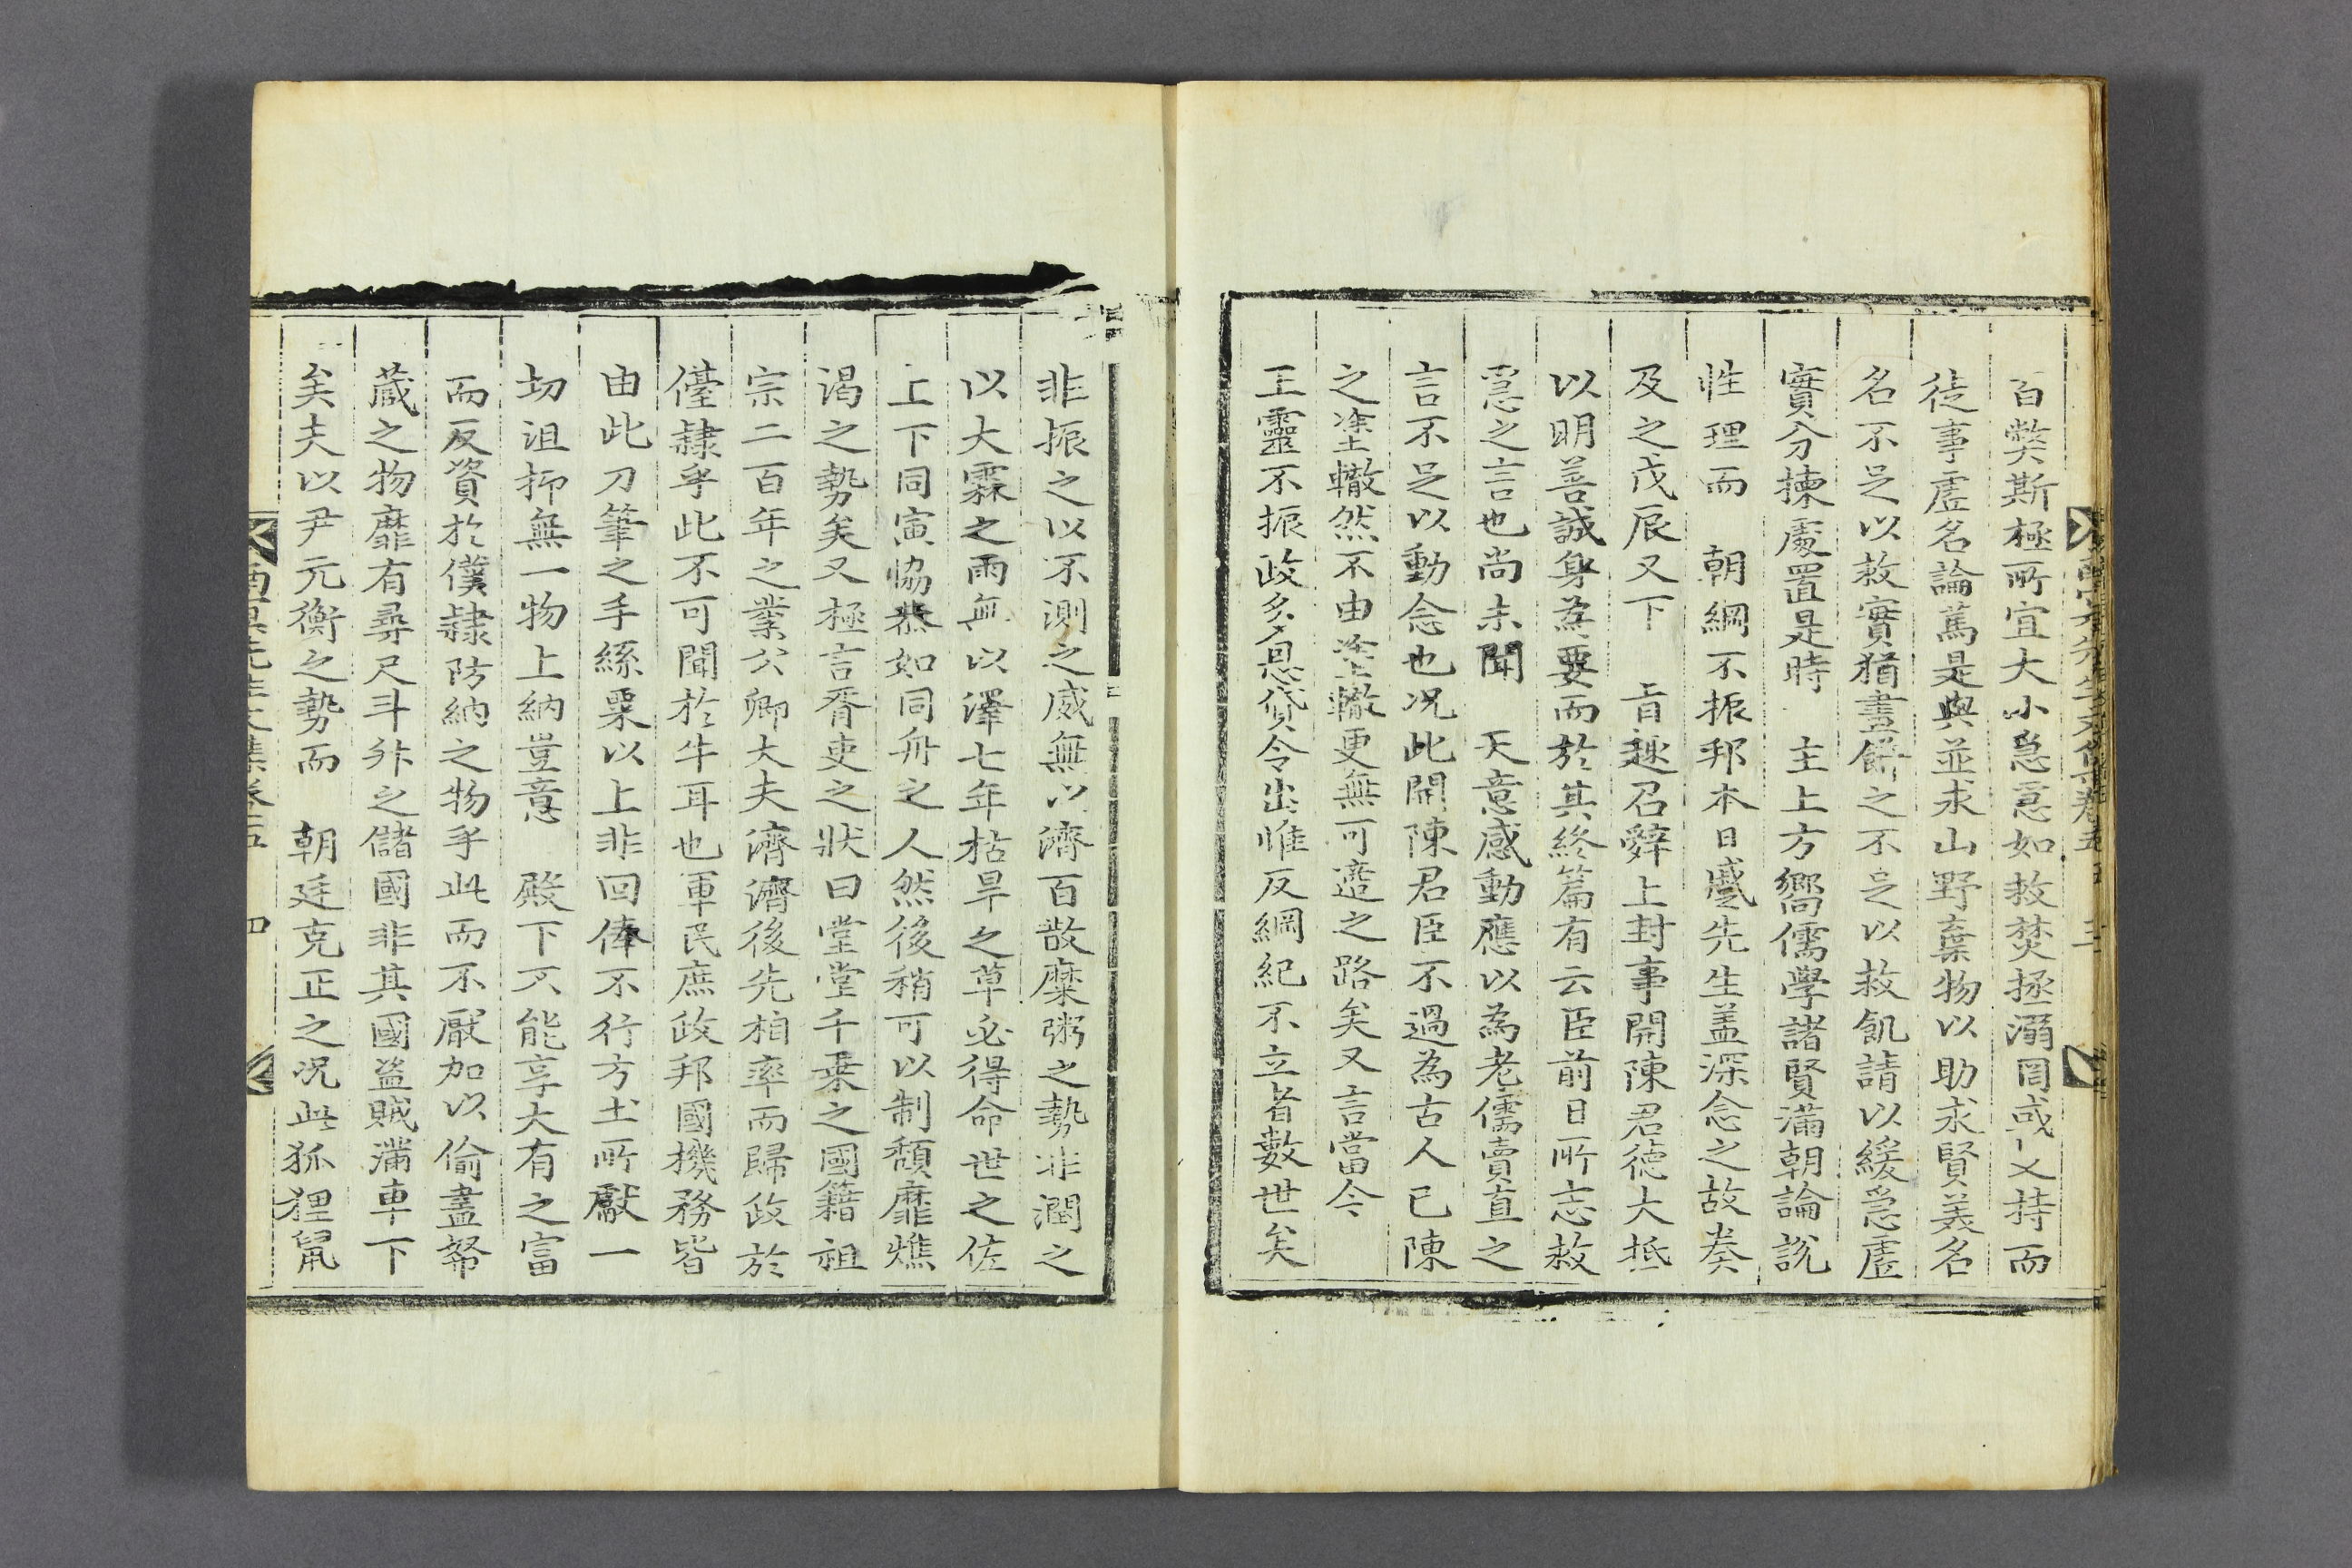 百獘斯極所宜大小急急如救焚拯溺罔或乂持而
徒事虛名論篤是與並求山野棄物以助求賢美名
名不足以救實猶畫餠之不足以救飢請以緩急虛
實分揀處置是時 主上方嚮儒學諸賢滿朝論說
性理而 朝綱不振邦本日蹙先生盖深念之故奏
及之戊辰又下 旨趣召辭上封事開陳君德大抵
以明善誠身為要而於其終篇有云臣前日所忘救
急之言也尚未聞 天意感動應以為老儒賣直之
言不足以動念也况此開陳君臣不過為古人已陳
之塗轍然不由塗轍更無可適之路矣又言當今
王靈不振政多恩貸令出惟反綱紀不立者數世矣
非振之以不測之威無以濟百散糜粥之勢非潤之
以大霖之雨無以澤七年枯旱之草必得命世之佐
上下同寅協恭如同舟之人然後稍可以制頹靡燋
渴之勢矣又極言胥吏之狀曰堂堂千乘之國籍祖
宗二百年之業公卿大夫濟濟後先相率而歸政於
儓隷乎此不可聞於牛耳也軍民庶政邦國機務皆
由此刀筆之手絲粟以上非回俸不行方土所獻一
切沮抑無一物上納豈意 殿下不能享大有之富
而反資於僕隷防納之物乎此而不厭加以偷盡帑
藏之物靡有尋尺斗升之儲國非其國盜賊滿車下
矣夫以尹元衡之勢而 朝廷克正之况此狐狸鼠
先生文集卷五 四